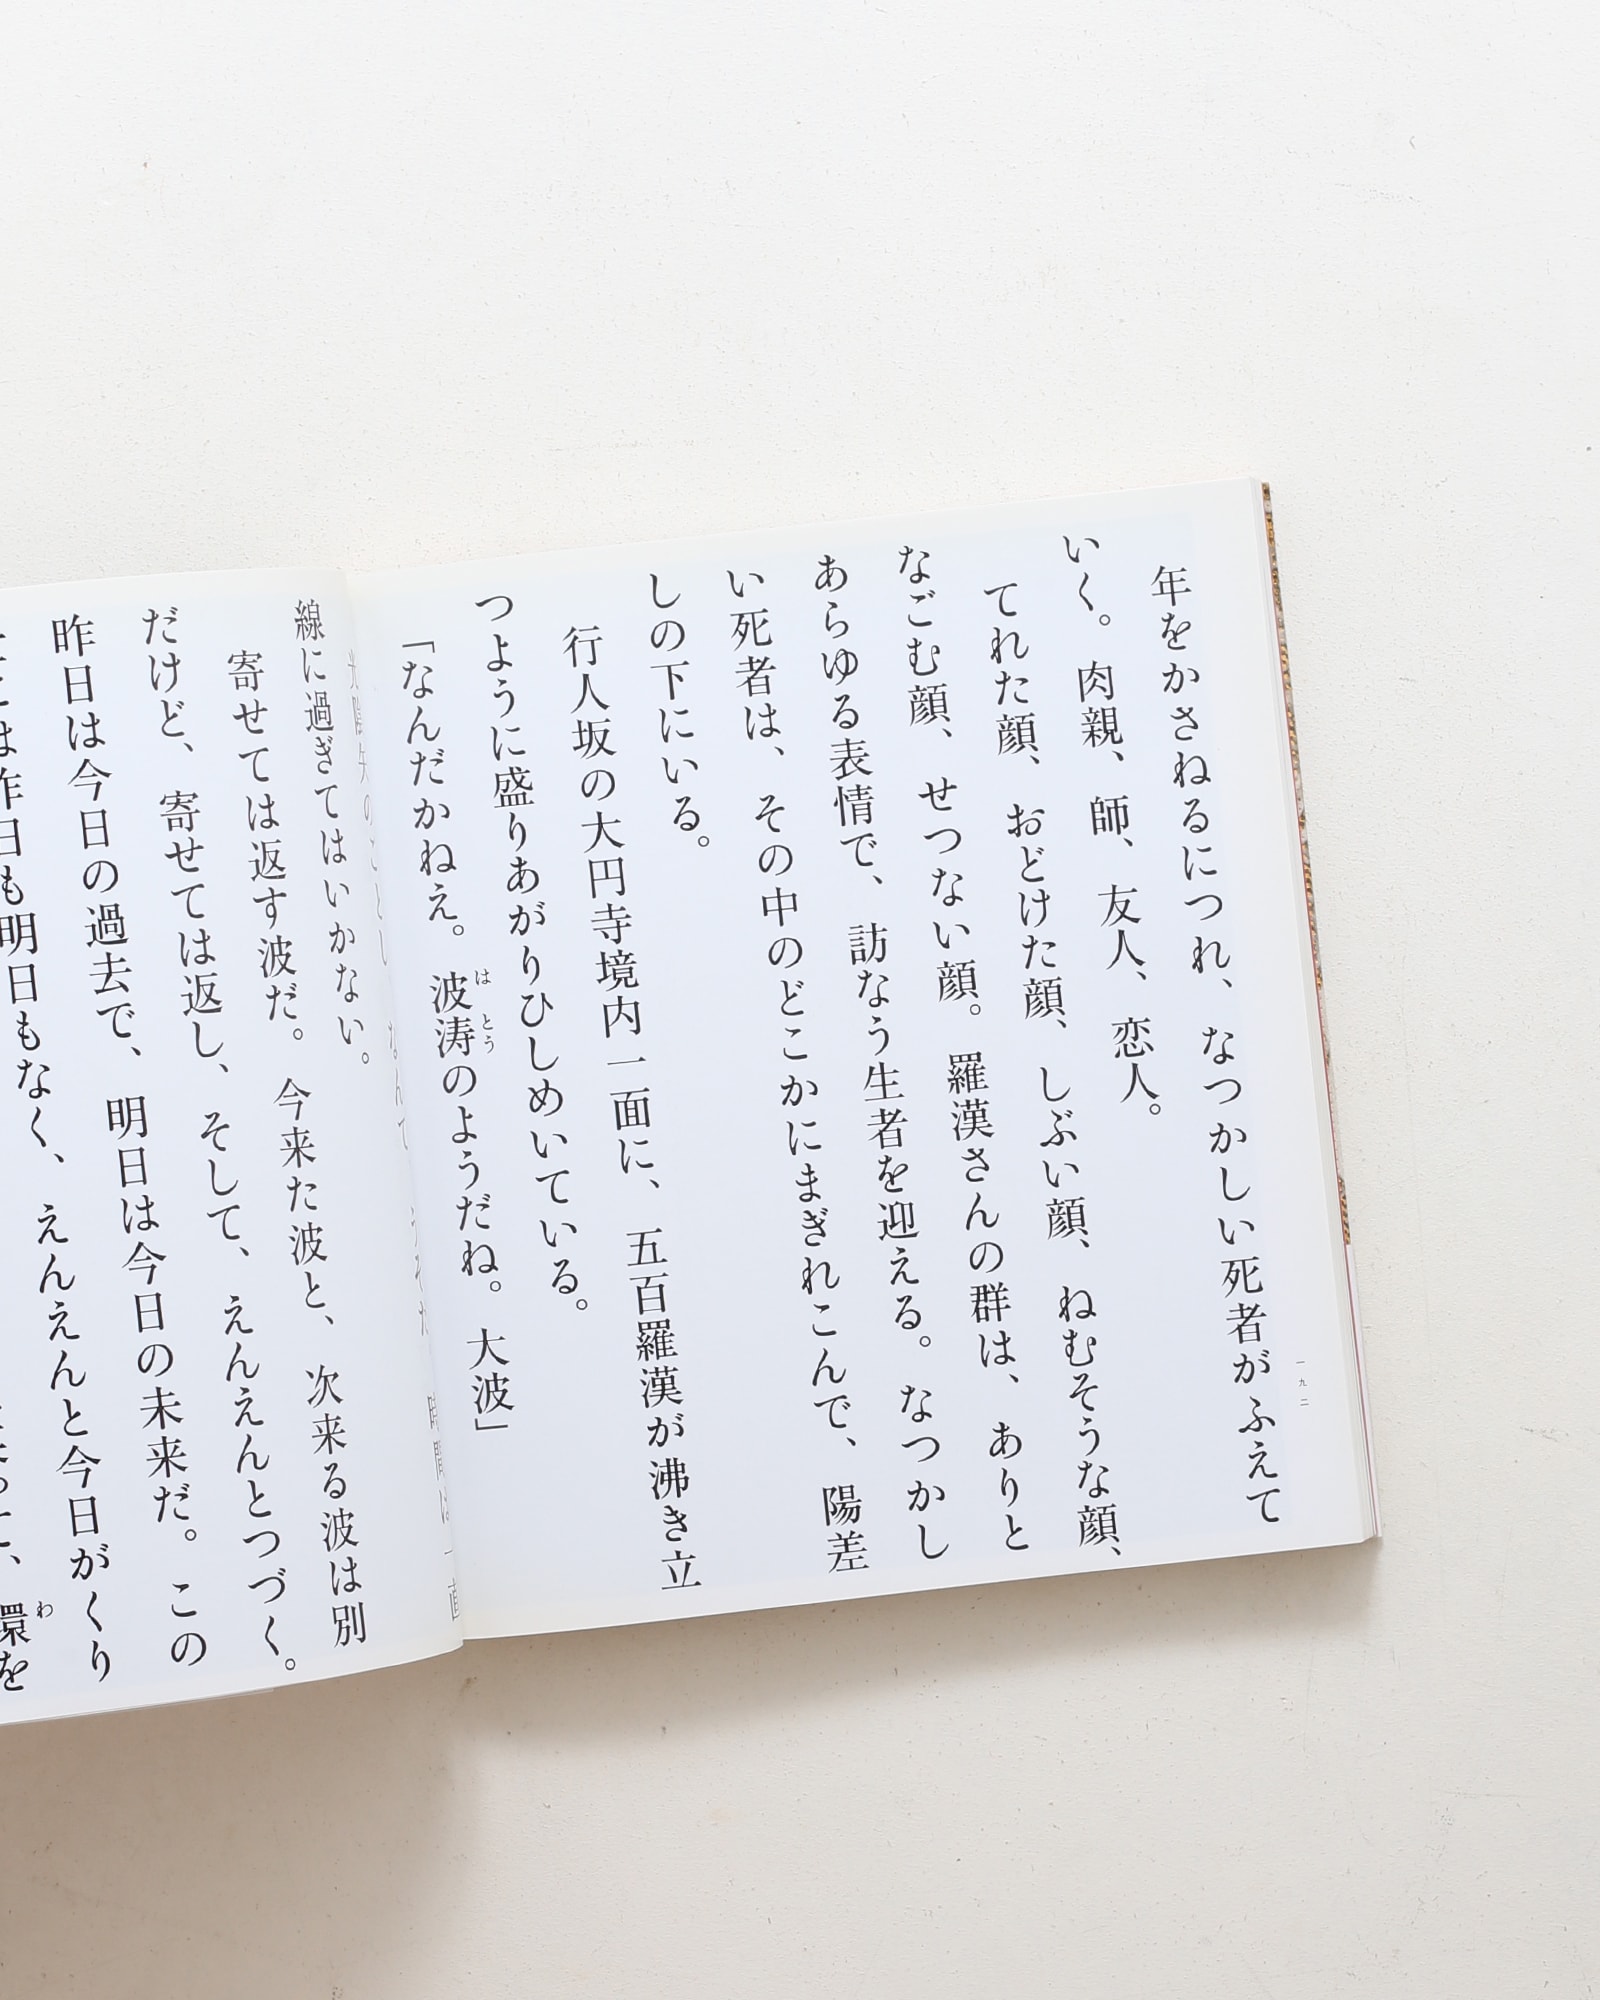 年をかさねるにつれ、なつかしい死者がふえて
いく。肉親、師、友人、恋人。
てれた顔、おどけた顔、しぶい顔、ねむそうな顔、
なごむ顔、せつない顔。羅漢さんの群は、ありと
あらゆる表情で、訪なう生者を迎える。なつかし
い死者は、その中のどこかにまぎれこんで、陽差
しの下にいる。
行人坂の大円寺境内一面に、五百羅漢が沸き立
つように盛りあがりひしめいている。
「なんだかねえ。波涛のようだね。大波」
はとう
一九二
光陰矢のごとし なんて、うそだ 時間は一直
線に過ぎてはいかない。
寄せては返す波だ。今来た波と、次来る波は別
だけど、寄せては返し、そして、えんえんとつづく。
昨日は今日の過去で、明日は今日の未来だ。この
昨日も明日もなく、えんえんと今日がくり
環を
わ